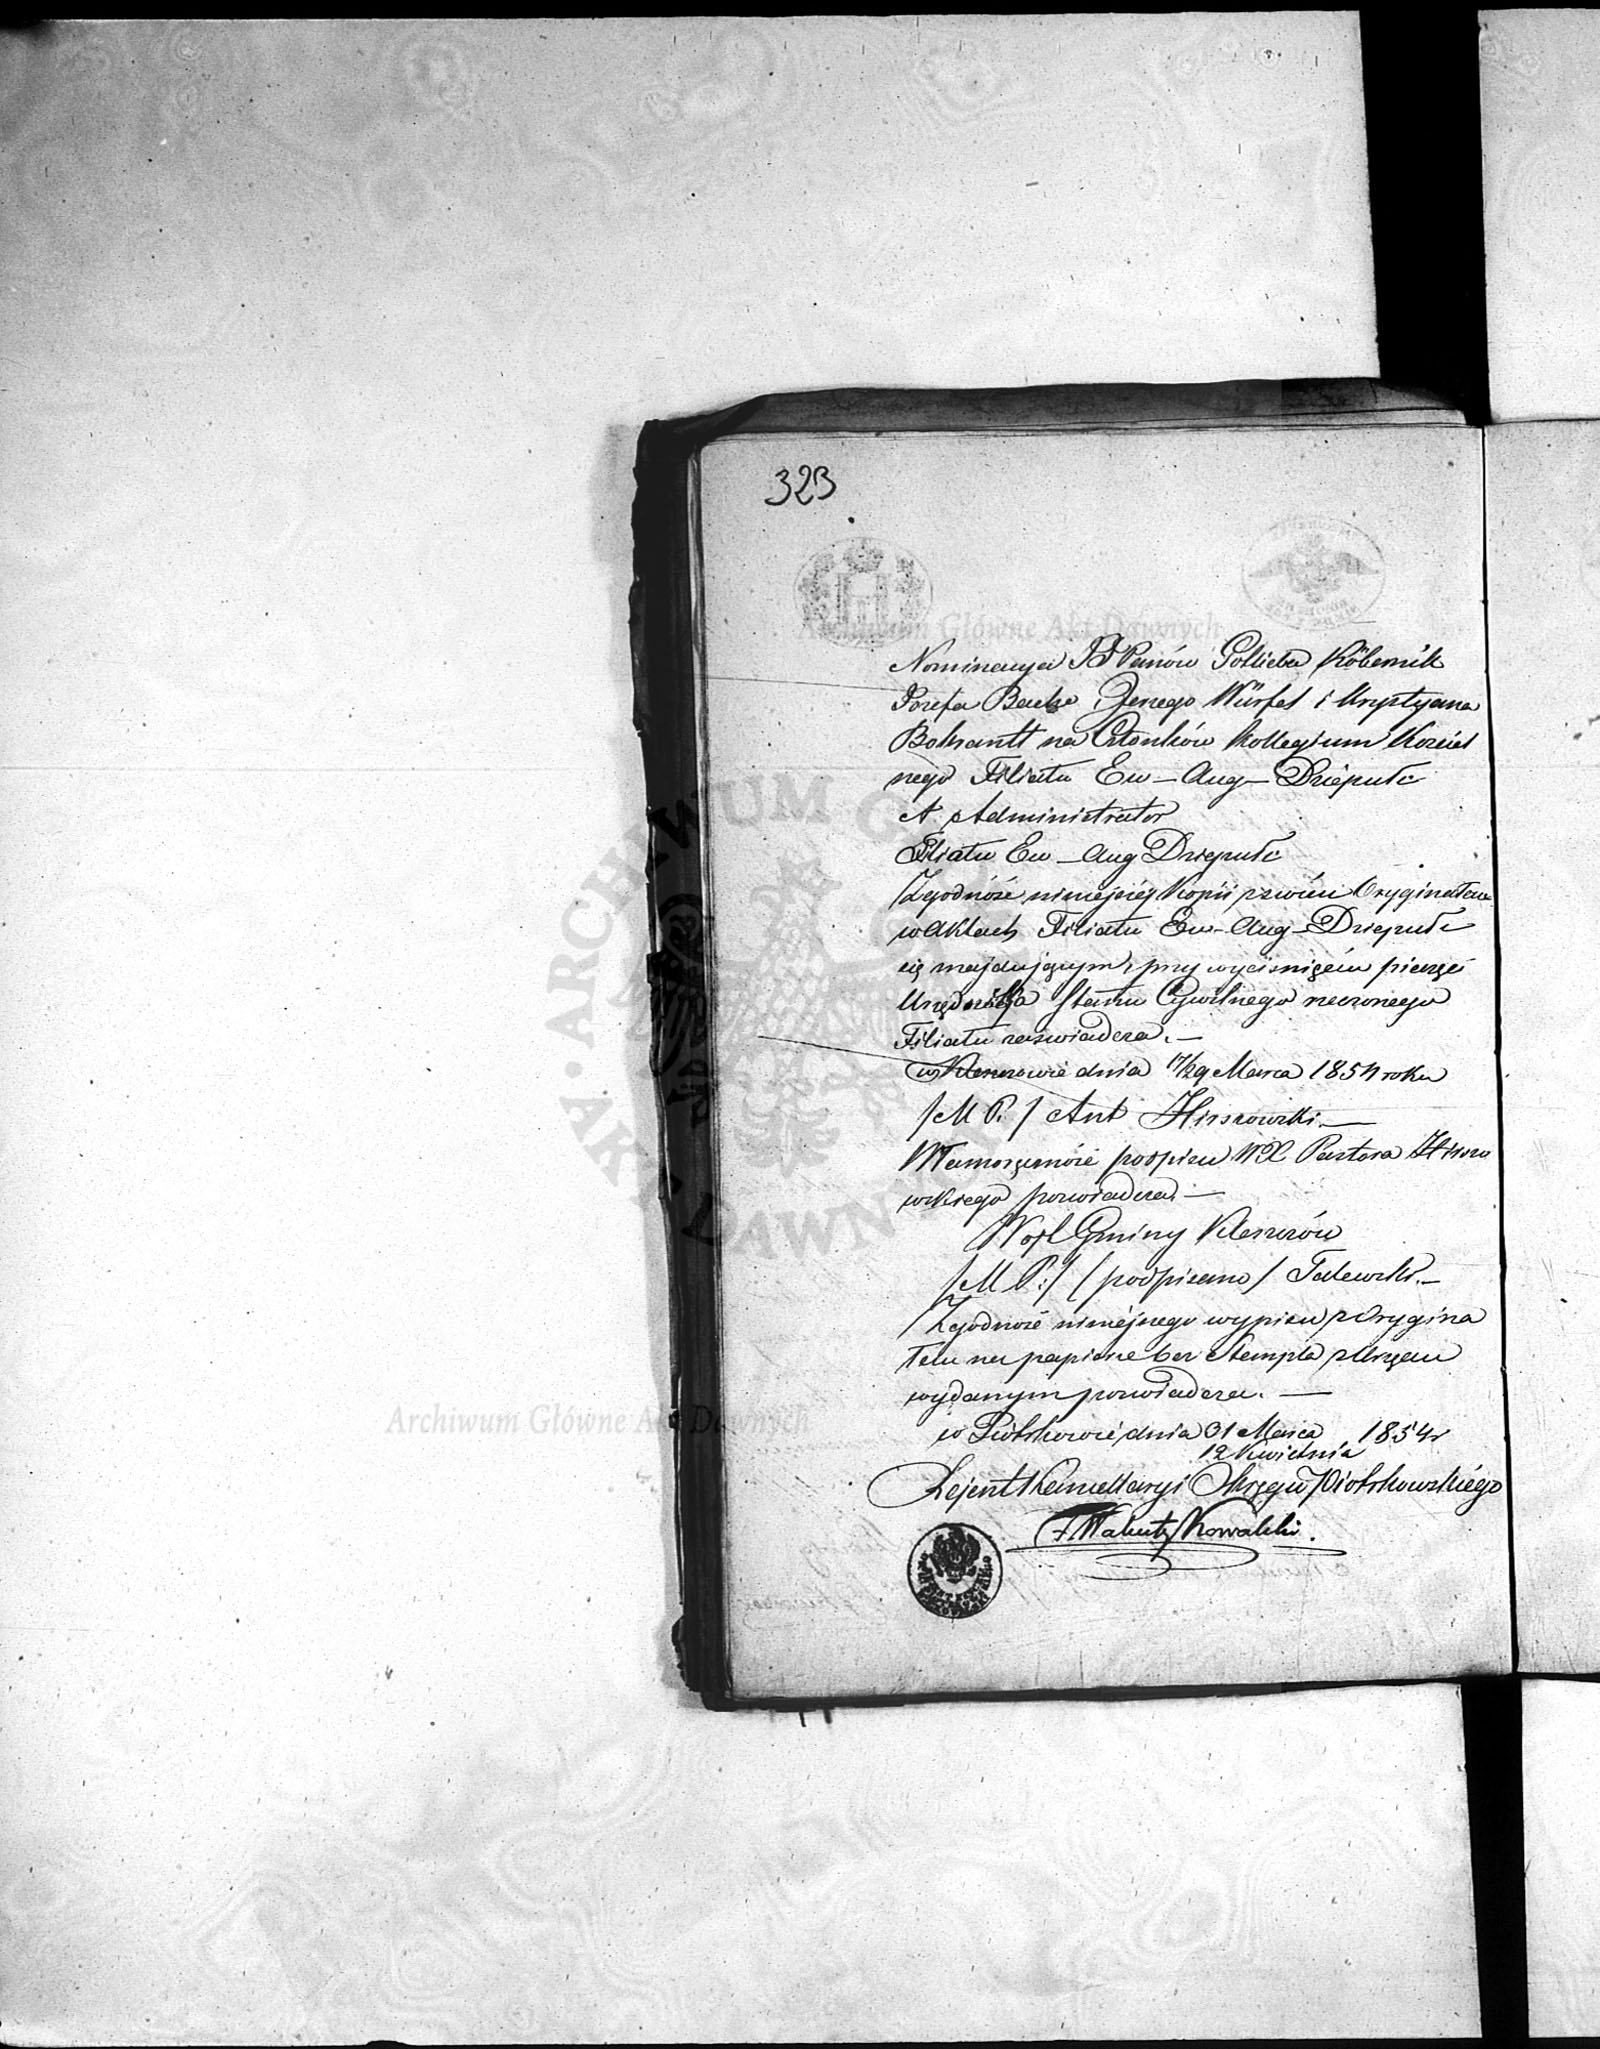 323
Archiwum Główne Akt Dawnych
Nominacya PP Panów Gottlieba Köbernik
Jozefa Backe Jerzego Würfel i Krystyana
na Członków Kollegium Kościel
nego Filiału Ew-Aug-Dziepułć
A Administrator
Filiału Ew-Aug Dziepułć
Zgodność niniejszéj Kopii z swém Oryginałem
w Aktach Filiału Ew-Aug-Dziepułć
się znajdującym, przy wyciśnięciu pieczęci
Urzędnika Stanu Cywilnego rzeczonego
Filiału zaświadcza.—
w Kleszczowie dnia 17/29 Marca 1854 roku
/M P./ Ant
Własnoręczność podpisu WX Pastora
wskiego poswiadcza.—
Wojt Gminy Kleszczów
/M P:/ /podpisano/ Talewski.—
Zgodność niniejszego wypisu z Orygina
łem na papierze bez Stempla z Urzędu
wydanym poswiadcza.—
w Piotrkowie dnia 31 Marca 1854 r
12 Kwietnia
Rejent Kancellaryi Okręgu Piotrkowskiego
Kowalski.
ARCHIWUM GŁÓWNE AKT DAWNYCH
Archiwum Główne Akt Dawnych